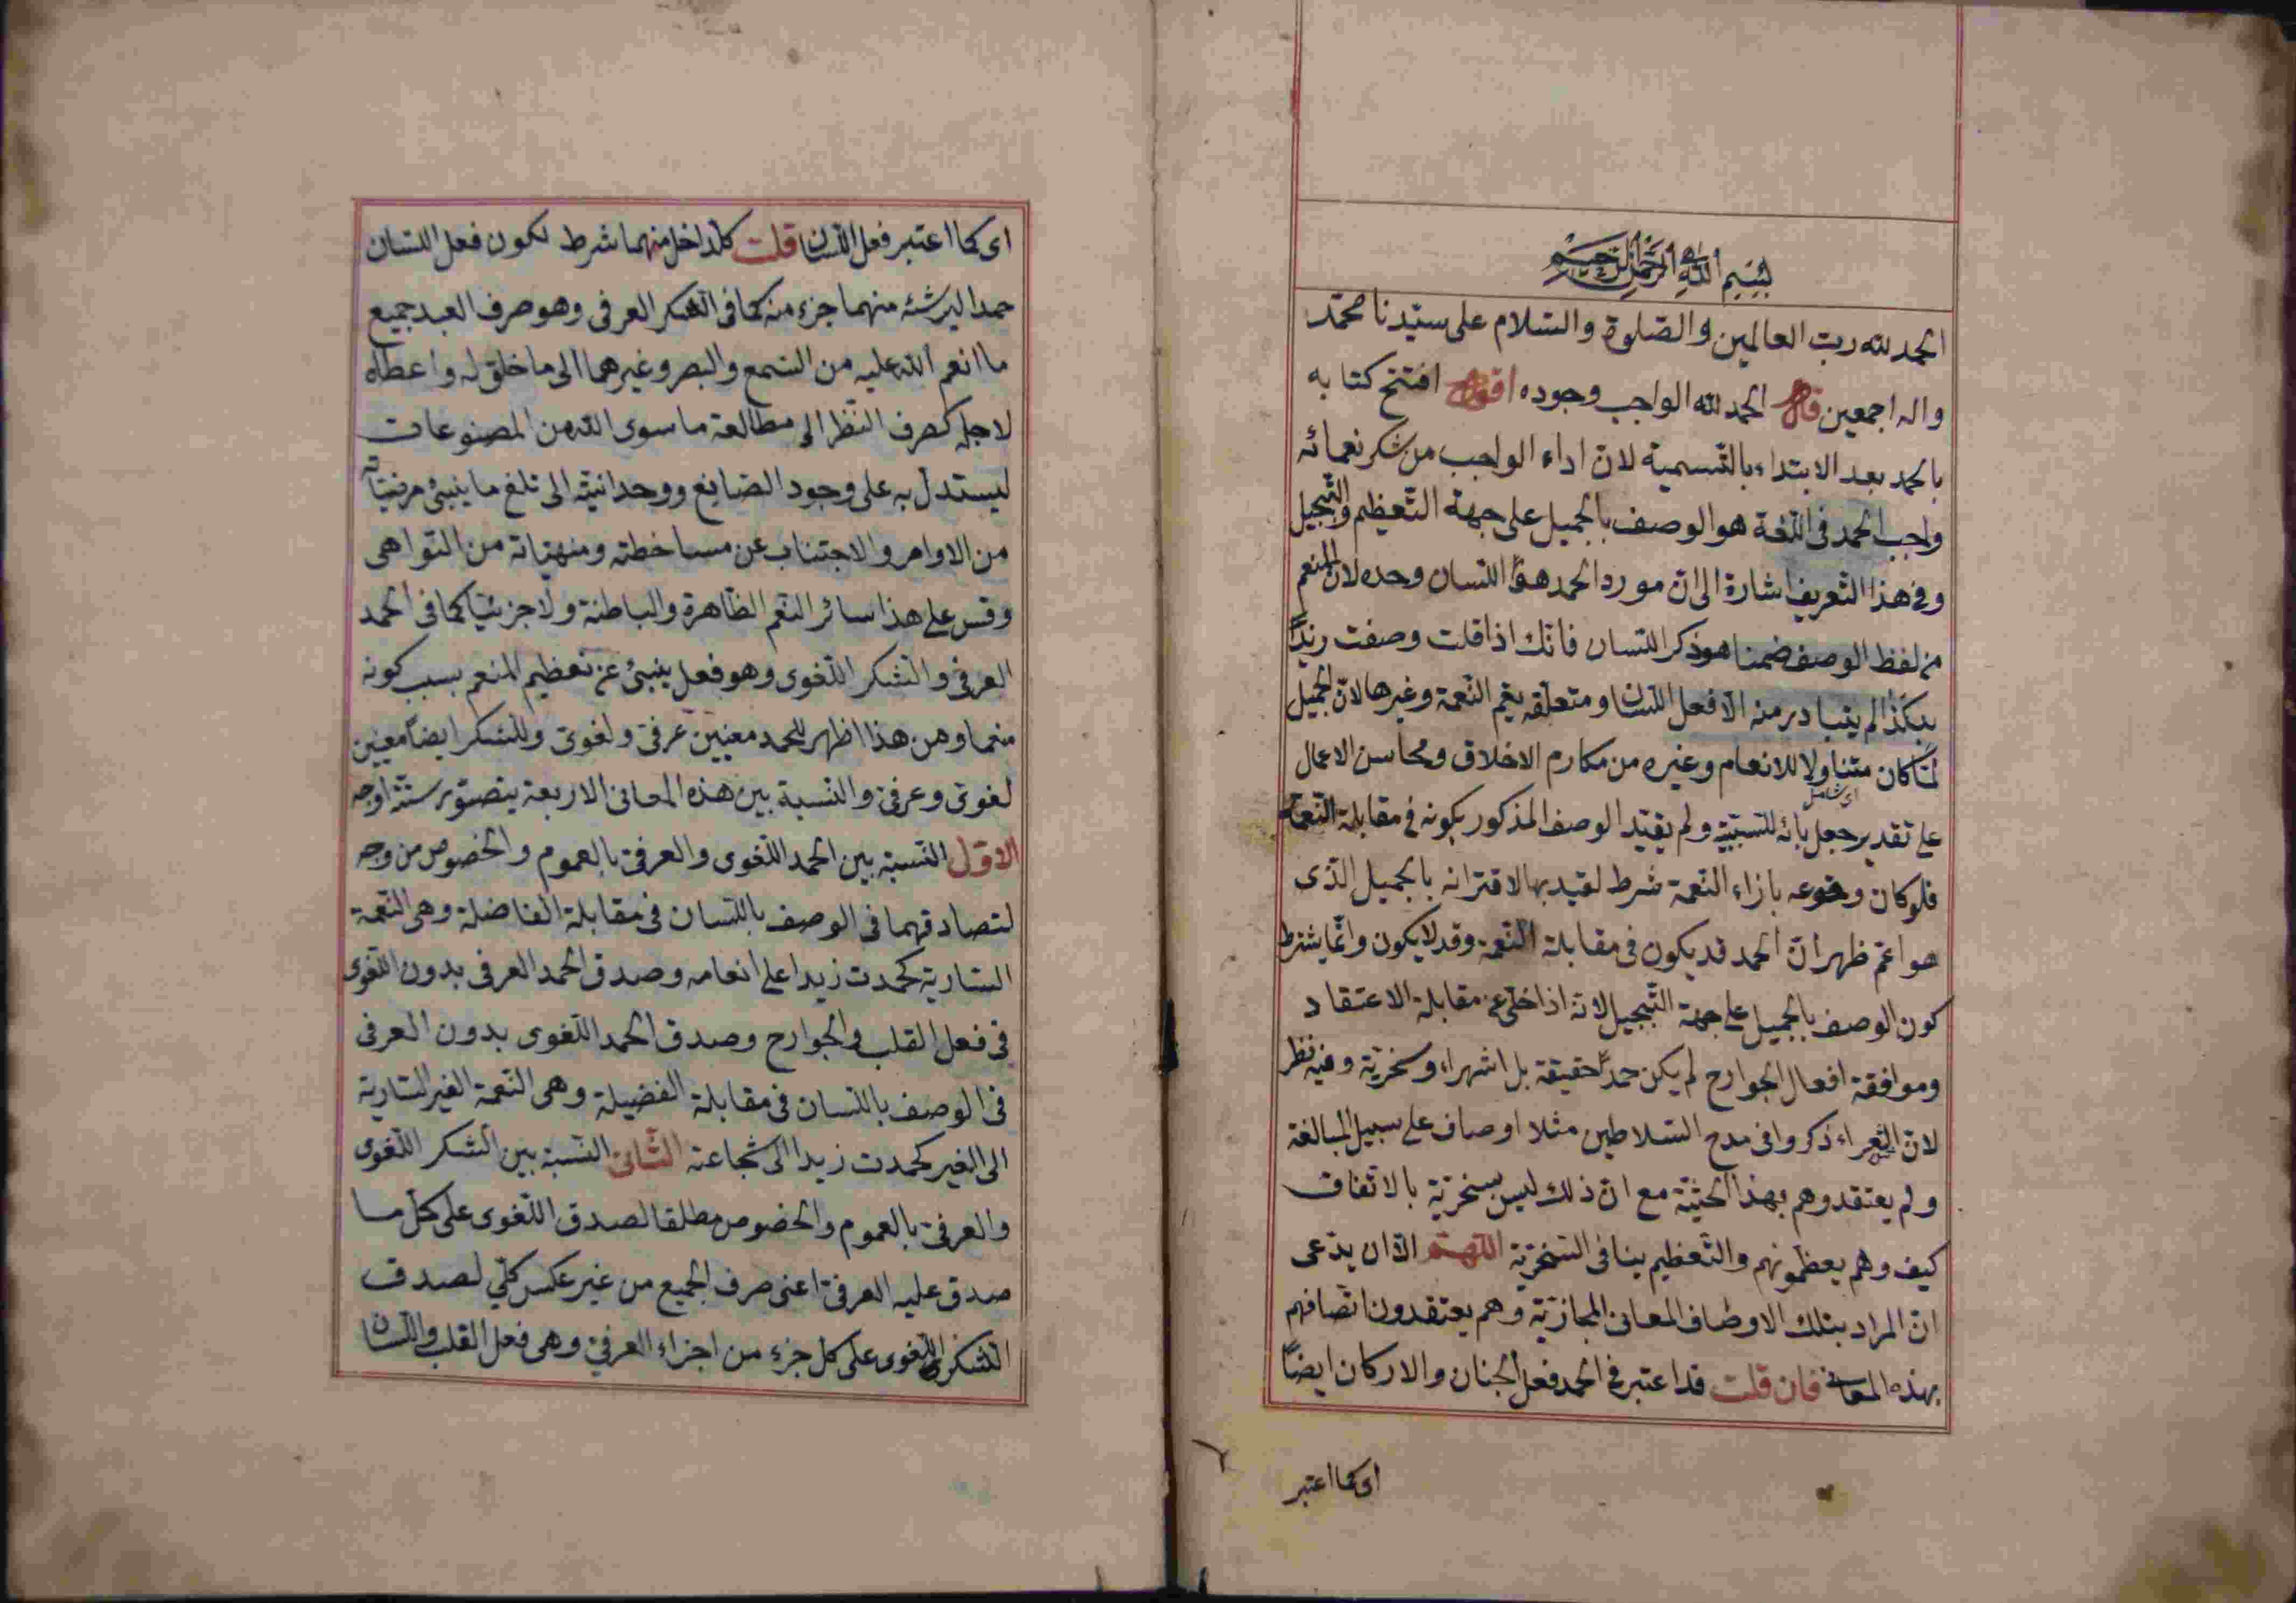 بسم الله الرحمن الرحيم
الحمد لله رب العالمين والصلوة والسلام على سيدنا محمد
واله اجمعين قال الحمد لله الواجب وجوده اقول افتتح كتابه
بالحمد بعد الابتداء بالتسمية لان اداء الواجب من شكر نعمائه
واجب الحمد فى اللغة هو الوصف بالجميل على جهة التعظيم والتبجيل
وفى هذا التعريف اشارة الى ان مورد الحمد هو اللسان وحده لان
من لفظ الوصف ضمنا هو ذكر اللسان فانك اذا قلت وصفت زيدا
بكذا لم يتبادر منه الا فعل اللسان ومتعلقه يعم النعمة وغيرها لان الجميل
لما كان متناولا للانعام وغيره من مكارم الاخلاق ومحاسن الاعمال
اى شامل
على تقدير جعل بائه للسببية ولم يقيد الوصف المذكور بكونه فى مقابلة النعمة
فلو كان وقوعه بازاء النعمة شرط لقيد بها لاقترانه بالجميل الذى
هو اعم ظهر ان الحمد قد يكون فى مقابلة النعمة وقد لا يكون وانما يشترط
كون الوصف بالجميل على جهة التبجيل لانه اذا خلى عن مقابلة الاعتقاد
وموافقة افعال الجوارح لم يكن حمدا حقيقة بل اشهراء وسخرية وفيه نظر
لان الشعراء ذكروا فى مدح السلاطين مثلا اوصاف على سبيل المبالغة
ولم يعتقدوهم بهذا الحيثية مع ان ذلك ليس بسخرية بالاتفاق
كيف وهم يعظمونهم والتعظيم ينافى السخرية اللهم الا ان يدعى
ان المراد بتلك الاوصاف المعانى المجازية وهم يعتقدون اتصافهم
بهذه المعانى فان قلت قد اعتبر فى الحمد فعل الجنان والاركان ايضا
اى كما اعتبر
اى كما اعتبر فعل اللسان قلت كل داخل منهما شرط لكون فعل اللسان
حمدا ليس شئ منهما جزء منه كما فى الشكر العرفى وهو صرف العبد جميع
ما انعم الله عليه من السمع والبصر وغيرهما الى ما خلق له واعطاه
لاجله كصرف النظر الى مطالعة ما سوى الله من المصنوعات
ليستدل به على وجود الصانع ووحدانيته الى تلغ ما ينبئ
من الاوامر والاجتناب عن مساخطته ومنهياته من النواهى
وقس على هذا سائر النعم الظاهرة والباطنة ولا جزئيا كما فى الحمد
العرفى والشكر اللغوى وهو فعل ينبئ عن تعظيم المنعم بسبب كونه
منعما وهن هذا اظهر للحمد معنيين عرفى ولغوى وللشكر ايضا معنيين
لغوى وعرفى والنسبة بين هذه المعانى الاربعة يتصور ستة اوجه
الاول النسبة بين الحمد اللغوى والعرفى بالعموم والخصوص من وجه
لتصادقهما فى الوصف باللسان فى مقابلة الفاضلة وهى النعمة
السارية كحمدت زيدا على انعامه وصدق الحمد العرفى بدون اللغوى
فى فعل القلب والجوارح وصدق الحمد اللغوى بدون العرفى
فى الوصف باللسان فى مقابلة الفضيلة وهى النعمة الغير السارية
الى الغير كحمدت زيدا الى شجاعته الثانى النسبة بين الشكر اللغوى
والعرفى بالعموم والخصوص مطلقا لصدق اللغوى على كل ما
صدق عليه العرفى اعنى صرف الجميع من غير عكس كلى لصدق
الشكر اللغوى على كل جزء من اجزاء العرفى وهى فعل القلب واللسان